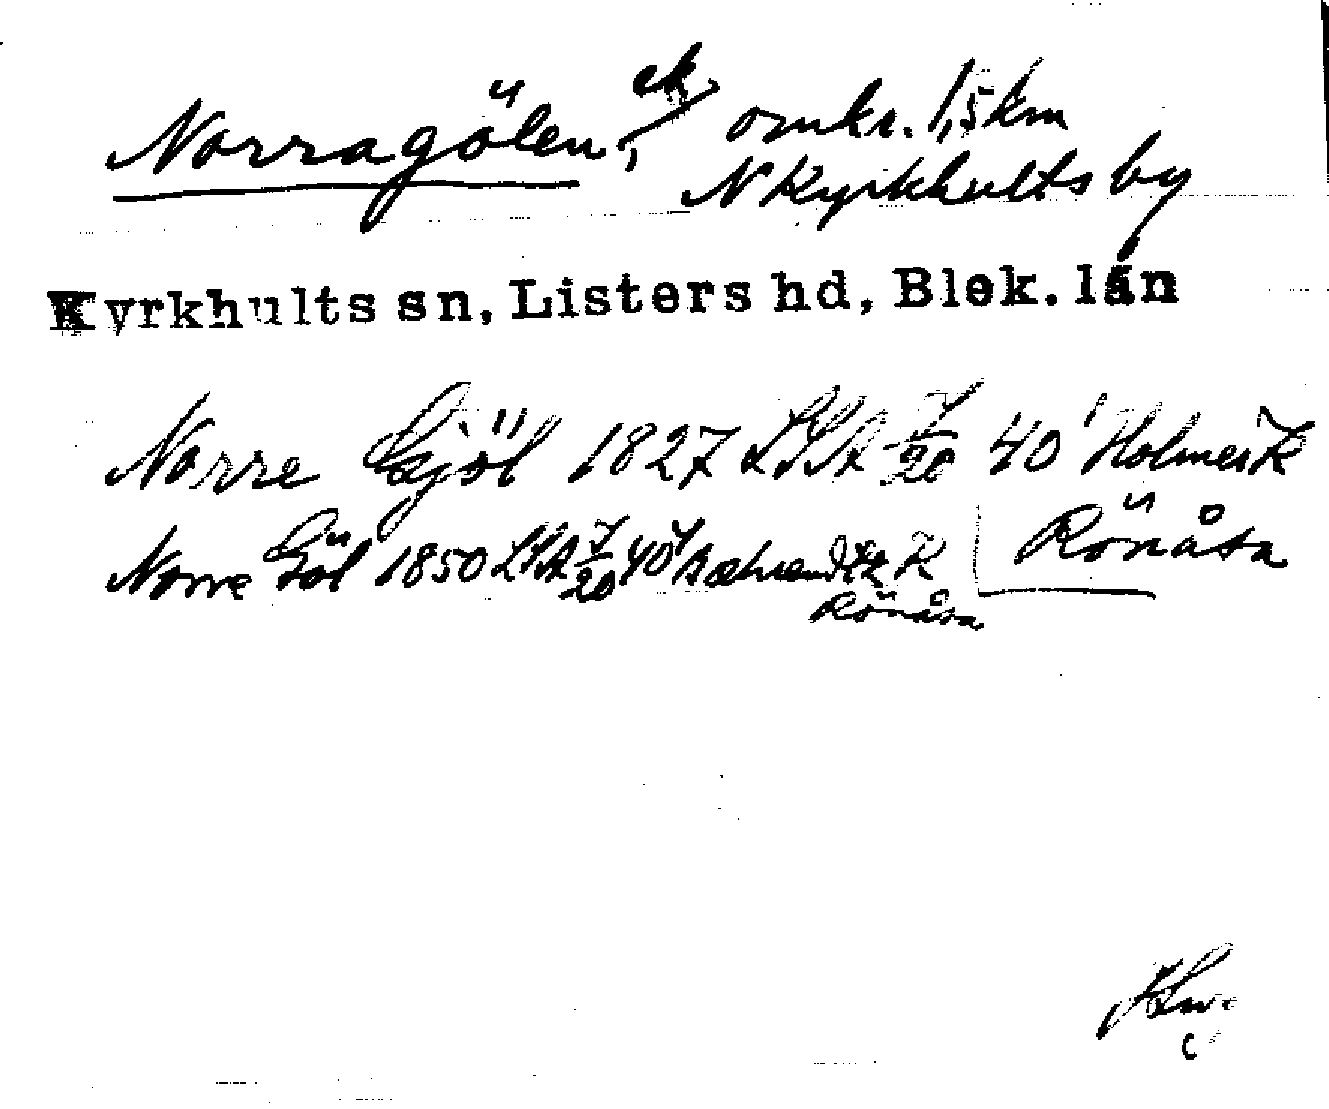 Norragölen, ek omkr. 1,5 km
N Kyrkhults by
Kyrkhults sn, Listers hd, Blek. län
Norre Gjöl 1827 LSA 7/20 40' Holmer K
Rönåsa
Norre Göl 1850 LSA 7/20 40 K
Rönåsa